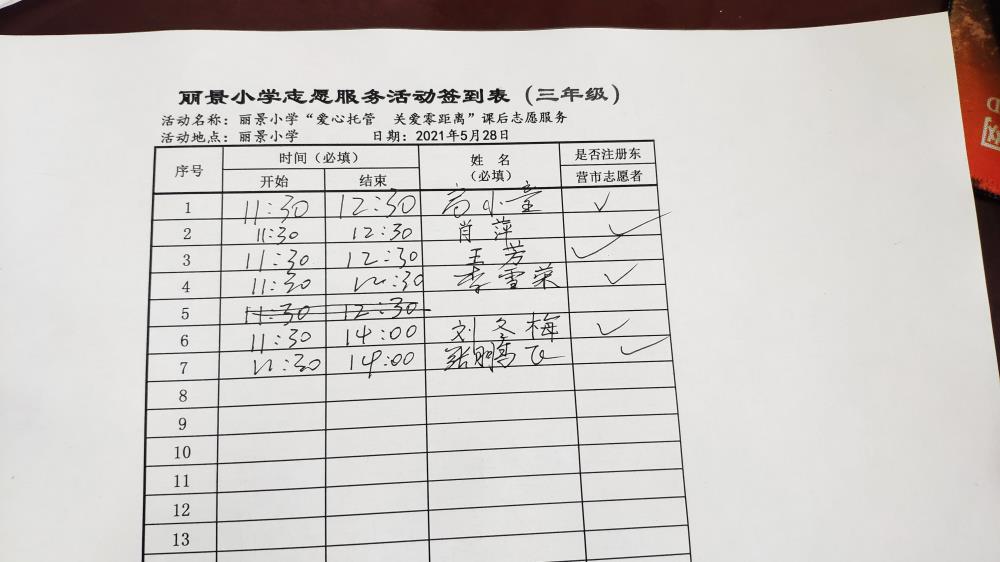 丽景小学志愿服务活动签到表（三年级）
活动名称：丽景小学“爱心托管 关爱零距离”课后志愿服务
活动地点：丽景小学 日期：2021年5月28日
序号 时间（必填） 姓 名（必填） 是否注册东营市志愿者
开始 结束
1 11:30 12:30 高小童 ✓
2 11:30 12:30 肖萍 ✓
3 11:30 12:30 王芳 ✓
4 11:30 12:30 李雪荣 ✓
5 11:30 12:30
6 11:30 14:00 刘冬梅 ✓
7 11:30 14:00 张鹏飞 ✓
8
9
10
11
12
13